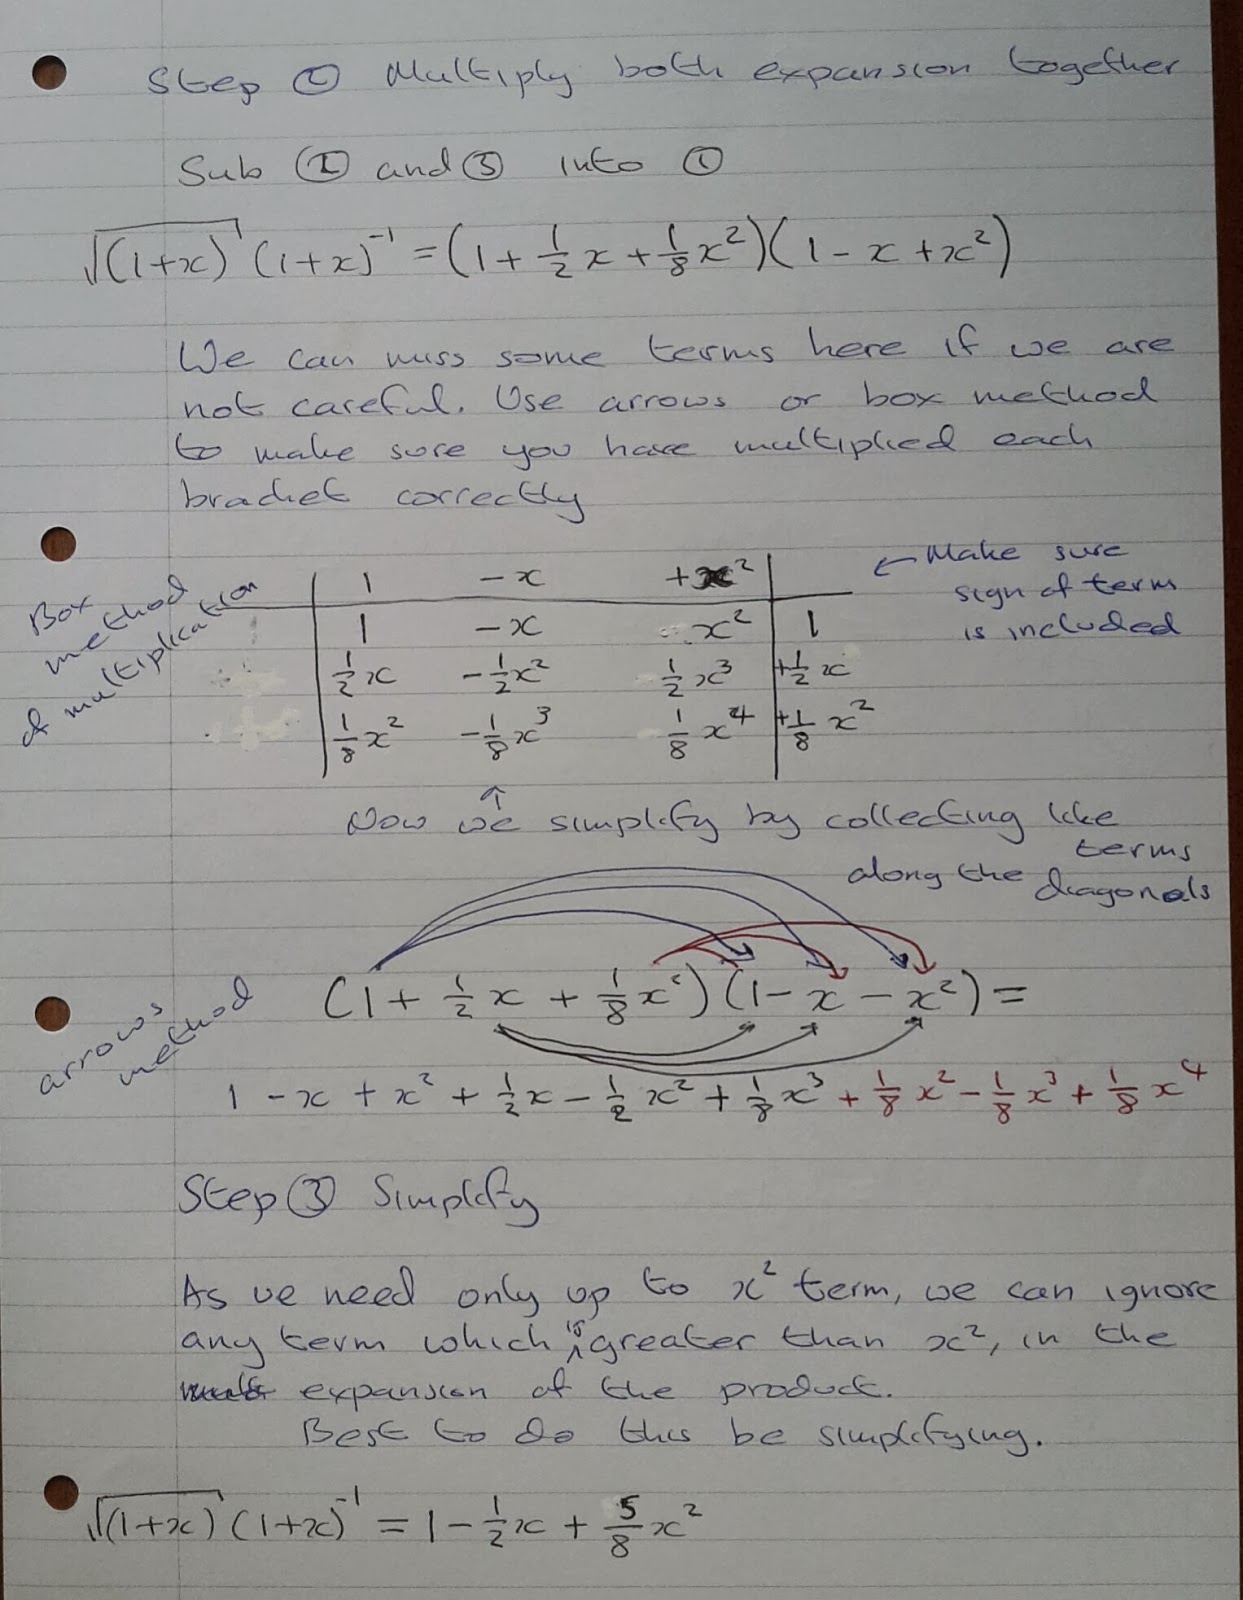 Step ② Multiply both expansion together
Sub ② and ③ into ①
√(1+x) (1+x)⁻¹ = (1 + 1/2 x + 1/8 x²)(1 - x + x²)
We can miss some terms here if we are
not careful. Use arrows or box method
to make sure you have multiplied each
bracket correctly
Box method of multiplication
1 -x +x²
1 -x x² 1
1/2 x -1/2 x² 1/2 x³ +1/2 x
1/8 x² -1/8 x³ 1/8 x⁴ +1/8 x²
← Make sure
sign of term
is included
↑
Now we simplify by collecting like
terms
along the diagonals
arrows method
(1 + 1/2 x + 1/8 x²)(1 - x - x²) =
1 - x + x² + 1/2 x - 1/2 x² + 1/8 x³ + 1/8 x² - 1/8 x³ + 1/8 x⁴
Step ③ Simplify
As we need only up to x² term, we can ignore
any term which is greater than x², in the
expansion of the product.
Best to do this be simplifying.
√(1+x) (1+x)⁻¹ = 1 - 1/2 x + 5/8 x²